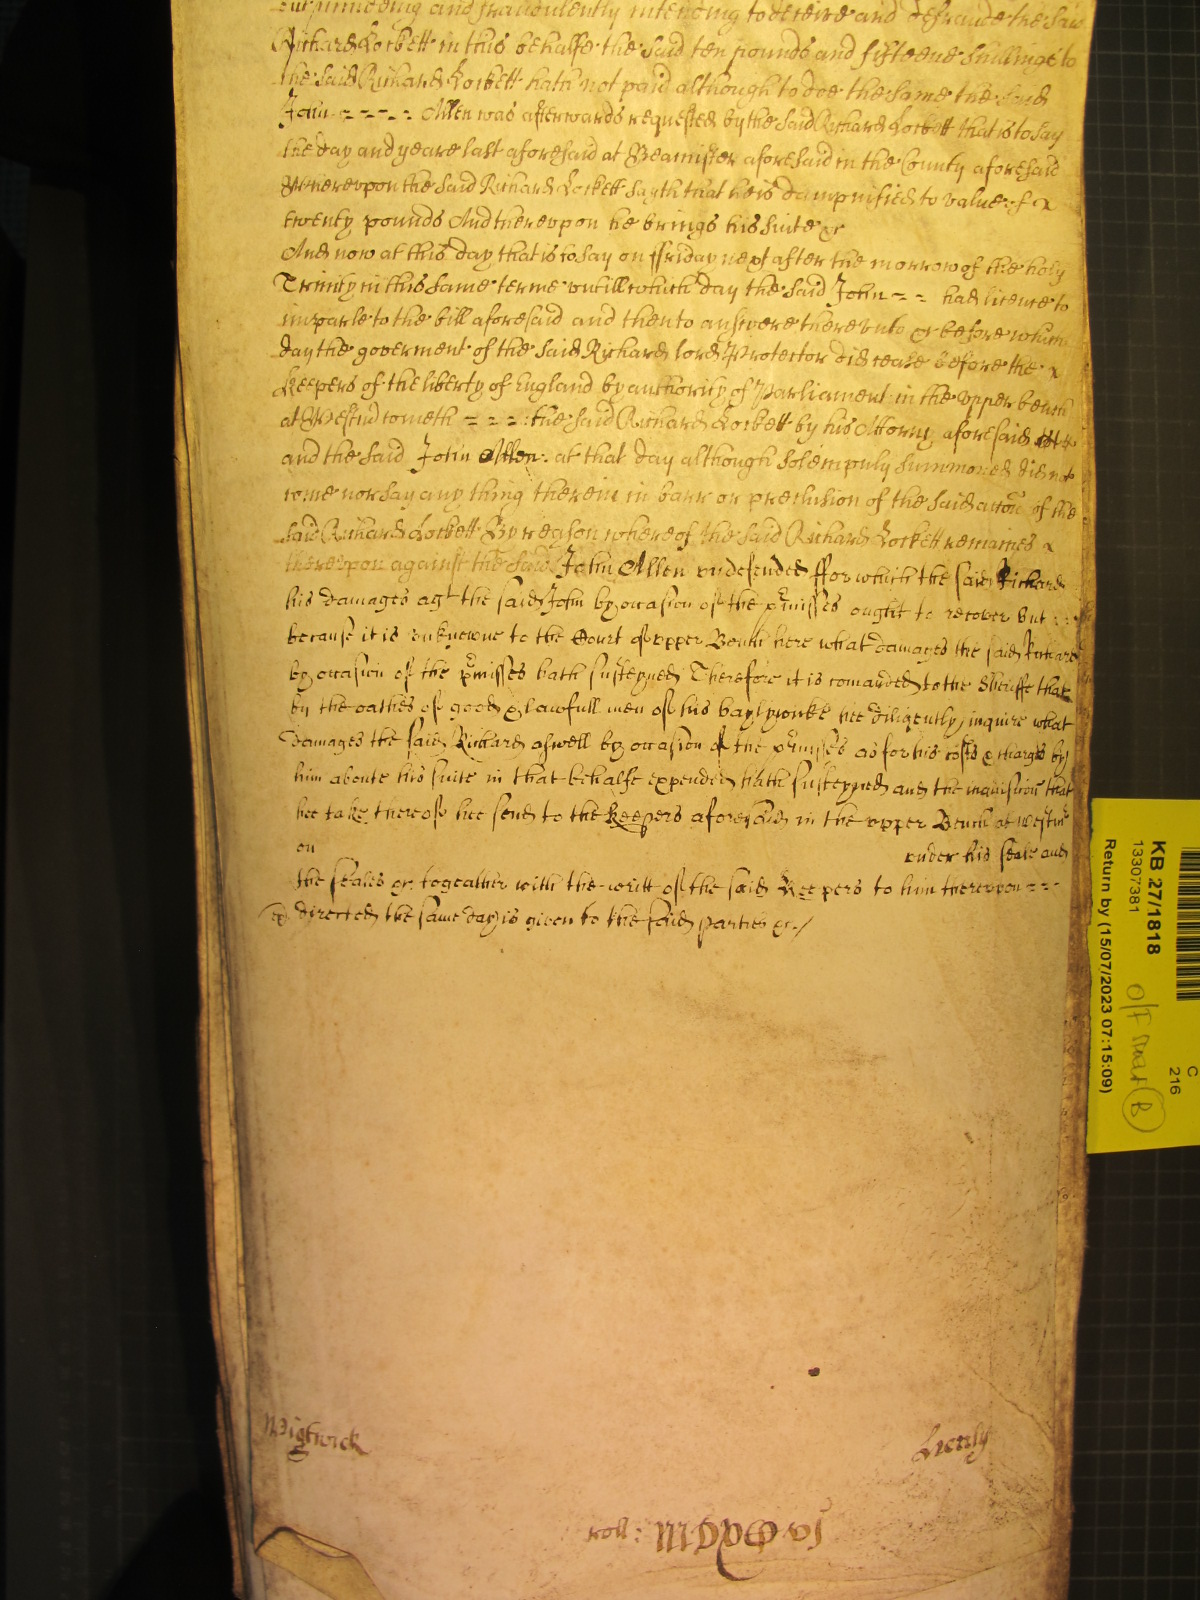 and fraudulently intending to deceive and defraude the said
Richard Lockett in this behalfe the said ten pounds and fifteene shillings to
the said Richard Lockett hath not paid although to doe the same the said
John = = = = Allen was afterwards requested by the said Richard Lockett that is to say
the day and yeare last aforesaid at Beamister aforesaid in the County aforesaid
Wherevpon the said Richard Lockett sayth that he is dampnified to value of
twenty pounds And therevpon he brings his suite &c
And now at this day that is to say on ffriday next after the morrow of the holy
Trinity in this same terme vntill which day the said John = = had licence to
imparle to the bill aforesaid and then to answere therevnto &c before which
day the goverment of the said Richard lord Protector did cease before the
Keepers of the liberty of England by authority of Parliament in the vpper bench
at Westm cometh = = = : the said Richard Lockett by his Attorny aforesaid
and the said John Allen at that day although solempnly summoned did not
come nor say any thing therein in barr or preclusion of the said accon of the
said Richard Lockett By reason whereof the said Richard Lockett remaines
therevpon against the said John Allen vndefended ffor which the said Richard
his damages agt the said John by occasion of the pmisses ought to recover but
because it is vnknowne to the Court of vpper Bench here what damages the said Richard
by occasion of the pmisses hath susteyned Therefore it is comanded to the Sheriffe that
by the oathes of good & lawfull men of his baylywicke hee diligently inquire what
damages the said Richard aswell by occasion of the pmisses as for his costs & charges by
him aboute his suite in that behalfe expended hath susteyned and the inquisicon that
hee take thereof hee send to the Keepers aforesaid in the vpper Bench at Westmr
on vnder his seale and
the seales &c togeather with the writt of the said Keepers to him therevpon = =
directed the same day is given to the said parties &c /
Wightwick
roll: MDXCVI
KB 27/1818
13307381
Return by (15/07/2023 07:15:09)
C
216
B